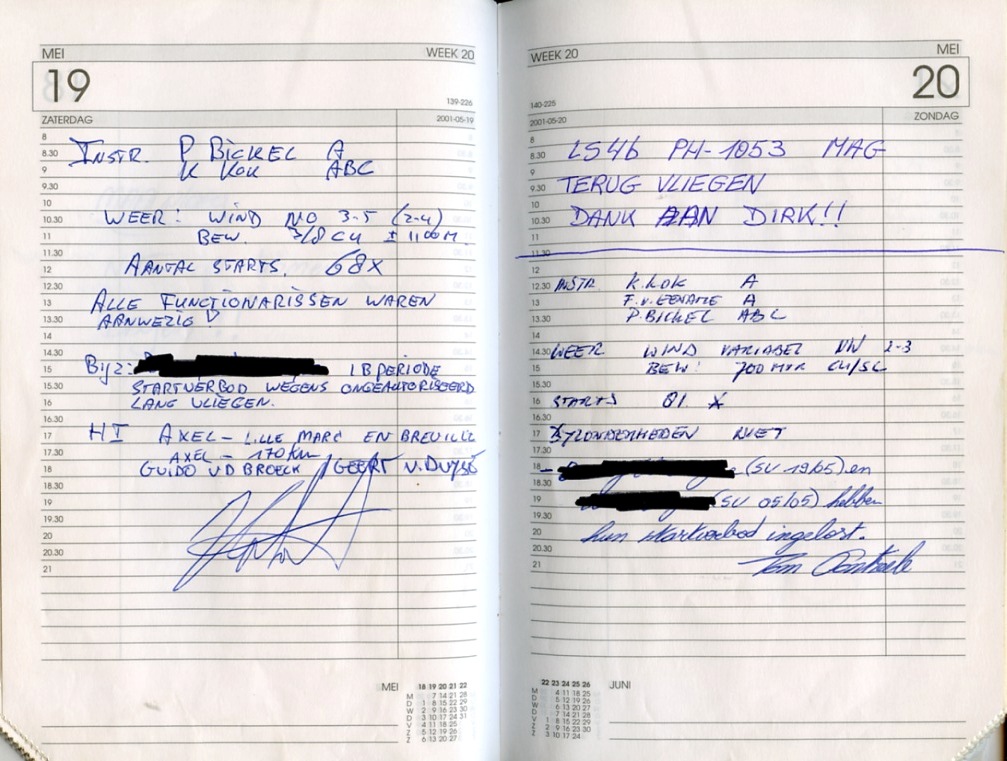 MEI WEEK 20
19
139-226
ZATERDAG 2001-05-19
8
8.30 INSTR. P BICKEL A
9 K KOK ABC
9.30
10
10.30 WEER: WIND NO 3-5 (2-4)
11 BEW. 3/8 CU ± 1100 M.
11.30
12 AANTAL STARTS. 68X
12.30
13 ALLE FUNCTIONARISSEN WAREN
13.30 AANWEZIG!
14
14.30
15 Bijz: 1B PERIODE
15.30 STARTVERBOD WEGENS ONGEAUTORISEERD
16 LANG VLIEGEN.
16.30
17 HI AXEL - LILLE MARC EN BREUILLE
17.30 AXEL - 170 km
18 GUIDO VD BROECK / GEERT V.
18.30
19
19.30
20
20.30
21
MEI 18 19 20 21 22
M 7 14 21 28
D 1 8 15 22 29
W 2 9 16 23 30
D 3 10 17 24 31
V 4 11 18 25
Z 5 12 19 26
Z 6 13 20 27
WEEK 20 MEI
20
140-225
2001-05-20 ZONDAG
8
8.30 LS4b PH-1053 MAG
9
9.30 TERUG VLIEGEN
10
10.30 DANK AAN DIRK!!
11
11.30
12
12.30 INSTR K.KOK A
13 F.v. A
13.30 P.BICKEL ABC
14
14.30 WEER WIND VARIABEL NW 2-3
15 BEW: 700 MTR CU/SC
15.30
16 STARTS 81 X
16.30
17 BYZONDERHEDEN NIET
17.30
18 - (SV 19/05) en
18.30
19 (SV 05/05) hebben
19.30
20 hun startverbod ingelost.
20.30
21 Tom
22 23 24 25 26 JUNI
M 4 11 18 25
D 5 12 19 26
W 6 13 20 27
D 7 14 21 28
V 1 8 15 22 29
Z 2 9 16 23 30
Z 3 10 17 24